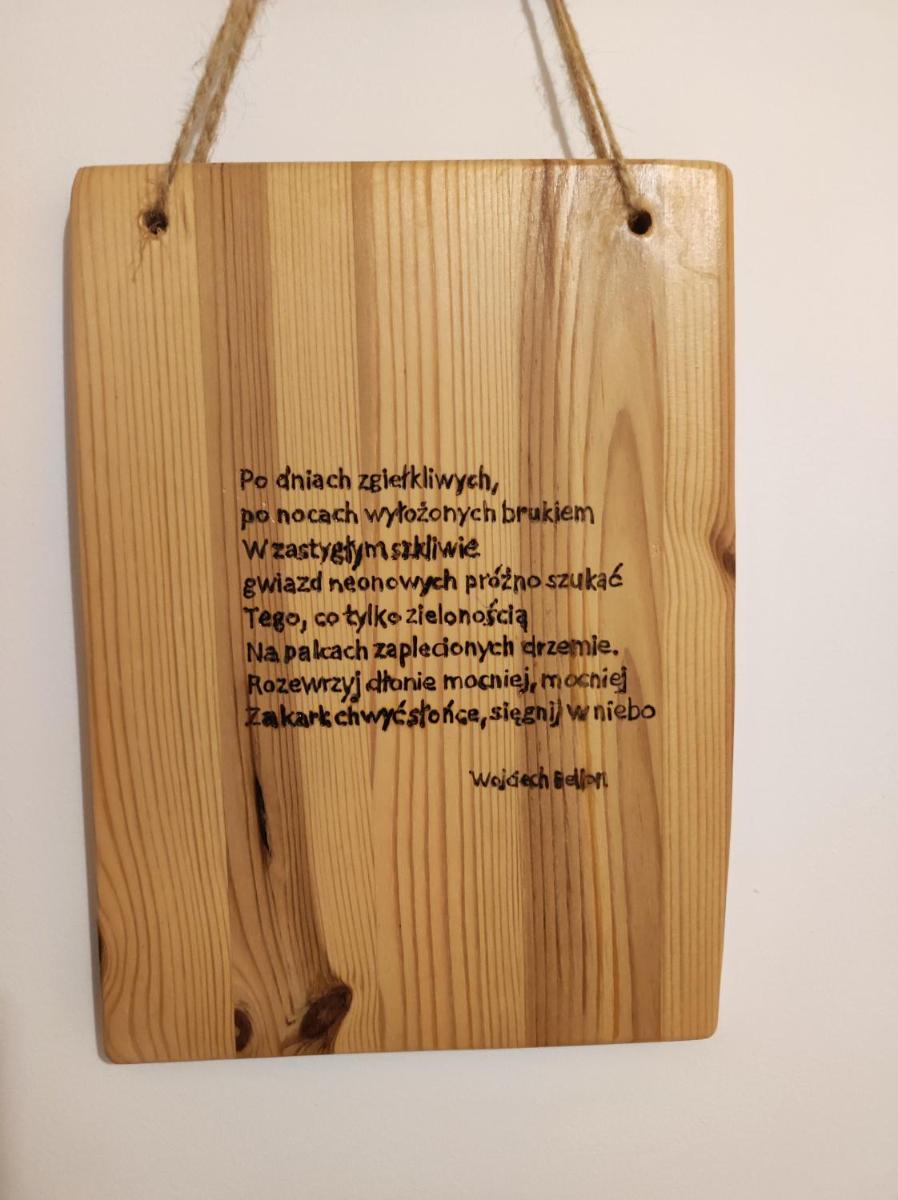 Po dniach zgiełkliwych,
po nocach wyłożonych brukiem
W zastygłym szkliwie
gwiazd neonowych próżno szukać
Tego, co tylko zielonością
Na palcach zaplecionych drzemie.
Rozewrzyj dłonie mocniej, mocniej
Za kark chwyć słońce, sięgnij w niebo
Wojciech Bellon